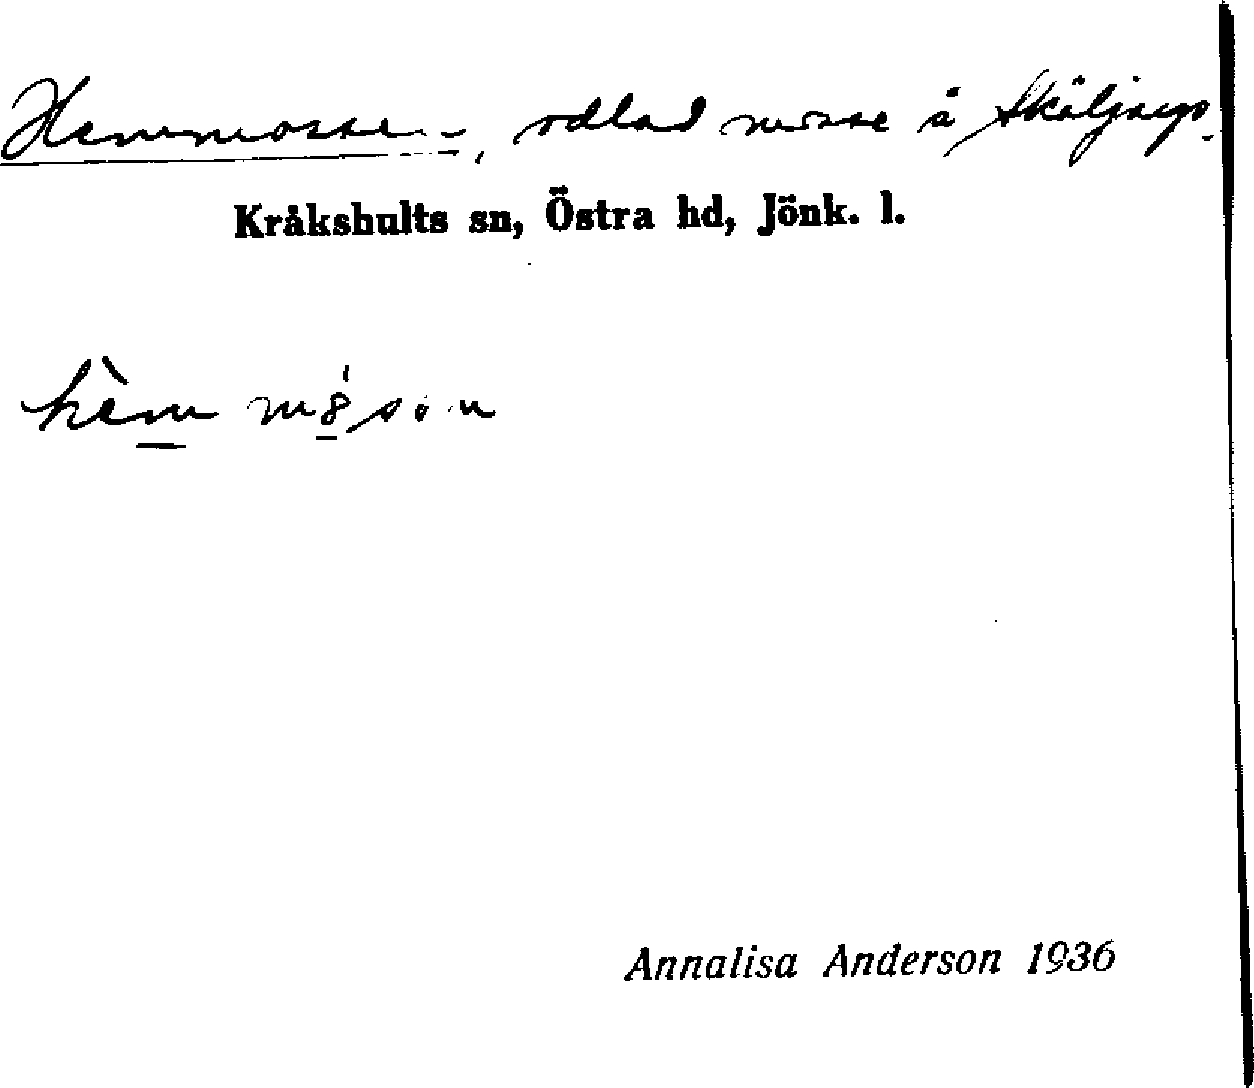 Hemmossen, odlad mosse å Skäljaryp.
Kråkshults sn, Östra hd, Jönk. l.
hèm
Annalisa Anderson 1936